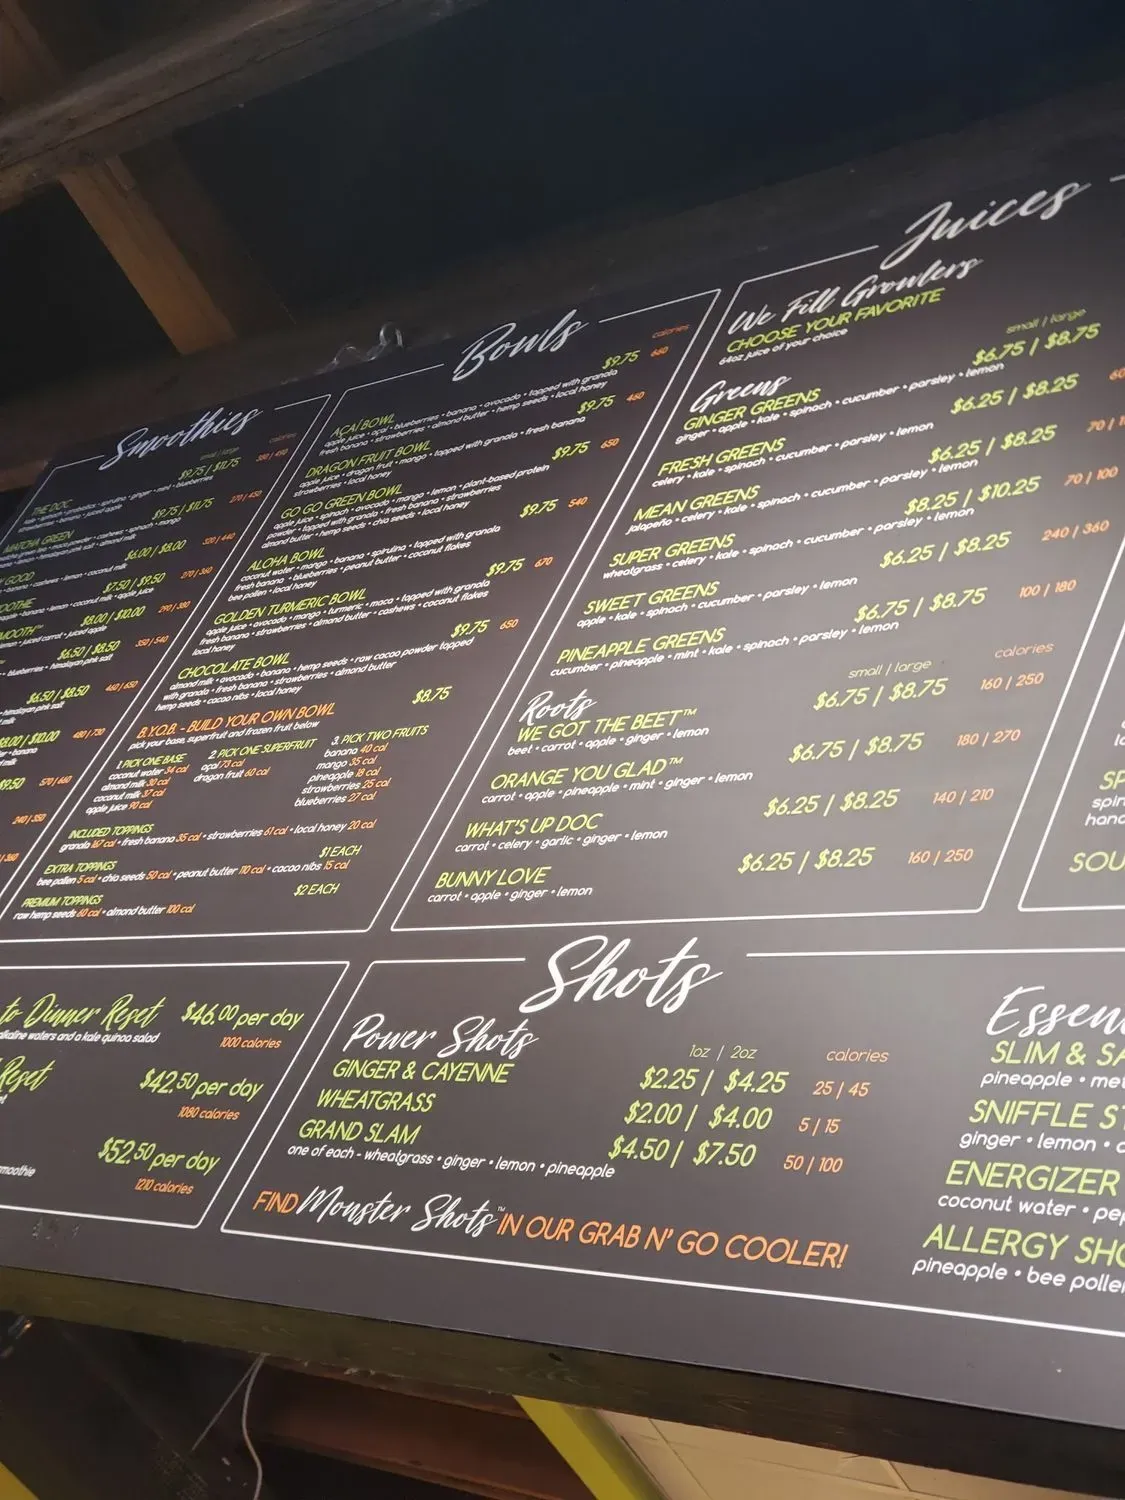 Smoothies
small | large
calories
THE DOC
$9.75 | $11.75
MATCHA GREEN
$9.75 | $11.75
270 | 450
GOOD
$6.00 | $8.00
320 | 440
cashews • lemon • coconut milk
$7.50 | $9.50
270 | 360
banana • lemon • coconut milk • apple juice
$8.00 | $10.00
290 | 380
juiced carrot • juiced apple
$6.50 | $8.50
350 | 540
blueberries • himalayan pink salt
$6.50 | $8.50
460 | 650
$8.00 | $10.00
480 | 730
$9.50
570 | 660
240 | 350
Bowls
calories
AÇAÍ BOWL
$9.75
660
apple juice • açaí • blueberries • banana • avocado • topped with granola
fresh banana • strawberries • almond butter • hemp seeds • local honey
DRAGON FRUIT BOWL
$9.75
460
apple juice • dragon fruit • mango • topped with granola • fresh banana
strawberries • local honey
GO GO GREEN BOWL
$9.75
650
apple juice • spinach • avocado • mango • lemon • plant-based protein
powder • topped with granola • fresh banana • strawberries
almond butter • hemp seeds • chia seeds • local honey
ALOHA BOWL
$9.75
540
coconut water • mango • banana • spirulina • topped with granola
fresh banana • blueberries • peanut butter • coconut flakes
bee pollen • local honey
GOLDEN TURMERIC BOWL
$9.75
670
apple juice • avocado • mango • turmeric • maca • topped with granola
fresh banana • strawberries • almond butter • cashews • coconut flakes
local honey
CHOCOLATE BOWL
$9.75
650
almond milk • avocado • banana • hemp seeds • raw cacao powder topped
with granola • fresh banana • strawberries • almond butter
hemp seeds • cacao nibs • local honey
B.Y.O.B. - BUILD YOUR OWN BOWL
$8.75
pick your base, superfruit and frozen fruit below
1. PICK ONE BASE
coconut water 34 cal
almond milk 30 cal
coconut milk 37 cal
apple juice 90 cal
2. PICK ONE SUPERFRUIT
açaí 73 cal
dragon fruit 60 cal
3. PICK TWO FRUITS
banana 40 cal
mango 35 cal
pineapple 18 cal
strawberries 25 cal
blueberries 27 cal
INCLUDED TOPPINGS
granola 167 cal • fresh banana 35 cal • strawberries 61 cal • local honey 20 cal
EXTRA TOPPINGS
$1 EACH
bee pollen 5 cal • chia seeds 50 cal • peanut butter 110 cal • cacao nibs 15 cal
PREMIUM TOPPINGS
$2 EACH
raw hemp seeds 60 cal • almond butter 100 cal
Juices
We Fill Growlers
CHOOSE YOUR FAVORITE
64oz juice of your choice
Greens
small | large
GINGER GREENS
$6.75 | $8.75
ginger • apple • kale • spinach • cucumber • parsley • lemon
FRESH GREENS
$6.25 | $8.25
celery • kale • spinach • cucumber • parsley • lemon
MEAN GREENS
$6.25 | $8.25
jalapeño • celery • kale • spinach • cucumber • parsley • lemon
SUPER GREENS
$8.25 | $10.25
70 | 100
wheatgrass • celery • kale • spinach • cucumber • parsley • lemon
SWEET GREENS
$6.25 | $8.25
240 | 360
apple • kale • spinach • cucumber • parsley • lemon
PINEAPPLE GREENS
$6.75 | $8.75
100 | 180
cucumber • pineapple • mint • kale • spinach • parsley • lemon
Roots
small | large
calories
WE GOT THE BEET™
$6.75 | $8.75
160 | 250
beet • carrot • apple • ginger • lemon
ORANGE YOU GLAD™
$6.75 | $8.75
180 | 270
carrot • apple • pineapple • mint • ginger • lemon
WHAT'S UP DOC
$6.25 | $8.25
140 | 210
carrot • celery • garlic • ginger • lemon
BUNNY LOVE
$6.25 | $8.25
160 | 250
carrot • apple • ginger • lemon
SOU
to Dinner Reset
$46.00 per day
alkaline waters and a kale quinoa salad
1000 calories
Reset
$42.50 per day
1080 calories
$52.50 per day
smoothie
1210 calories
Shots
Power Shots
1oz | 2oz
calories
GINGER & CAYENNE
$2.25 | $4.25
25 | 45
WHEATGRASS
$2.00 | $4.00
5 | 15
GRAND SLAM
$4.50 | $7.50
50 | 100
one of each - wheatgrass • ginger • lemon • pineapple
FIND Monster Shots™ IN OUR GRAB N' GO COOLER!
Essen
SLIM & SA
pineapple • met
SNIFFLE ST
ginger • lemon • c
ENERGIZER
coconut water • pep
ALLERGY SHO
pineapple • bee pollen